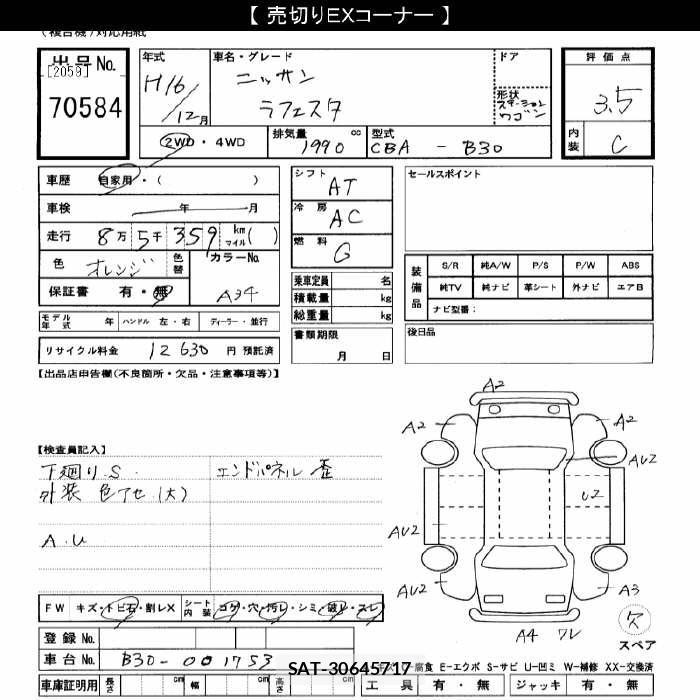 【 売切りEXコーナー 】
(複合機)対応用紙
出品No.
[2059]
70584
年式
H16/12月
車名・グレード
ニッサン
ラフェスタ
ドア
形状
ステーション
ワゴン
評価点
3.5
内装
C
2WD・4WD
排気量 1990 cc
型式 CBA - B30
車歴 自家用・( )
車検 年 月
走行 8万5千359 km マイル( )
色 オレンジ
色替
カラーNo.
A34
保証書 有・無
モデル年式 年 ハンドル 左・右 ディーラー・並行
リサイクル料金 12630 円 預託済
シフト AT
冷房 AC
燃料 G
乗車定員 名
積載量 kg
総重量 kg
書類期限
月 日
セールスポイント
装備品
S/R 純A/W P/S P/W ABS
純TV 純ナビ 革シート 外ナビ エアB
ナビ型番:
後日品
【出品店申告欄(不良箇所・欠品・注意事項等)】
【検査員記入】
下廻り S
外装 色アセ(大)
A.U
エンドパネル 歪
A2
A2
A2
AU2
U2
AU2
AU2
A3
A4 ワレ
欠
スペア
FW キズ・トビ石・割レX
シート内装 コゲ・穴・汚レ・シミ・破レ・スレ
登録 No.
車台 No. B30-001753
SAT-30645717
腐食 E-エクボ S-サビ U-凹ミ W-補修 XX-交換済
車庫証明用 長さ cm 幅 cm 高さ cm
工具 有・無 ジャッキ 有・無